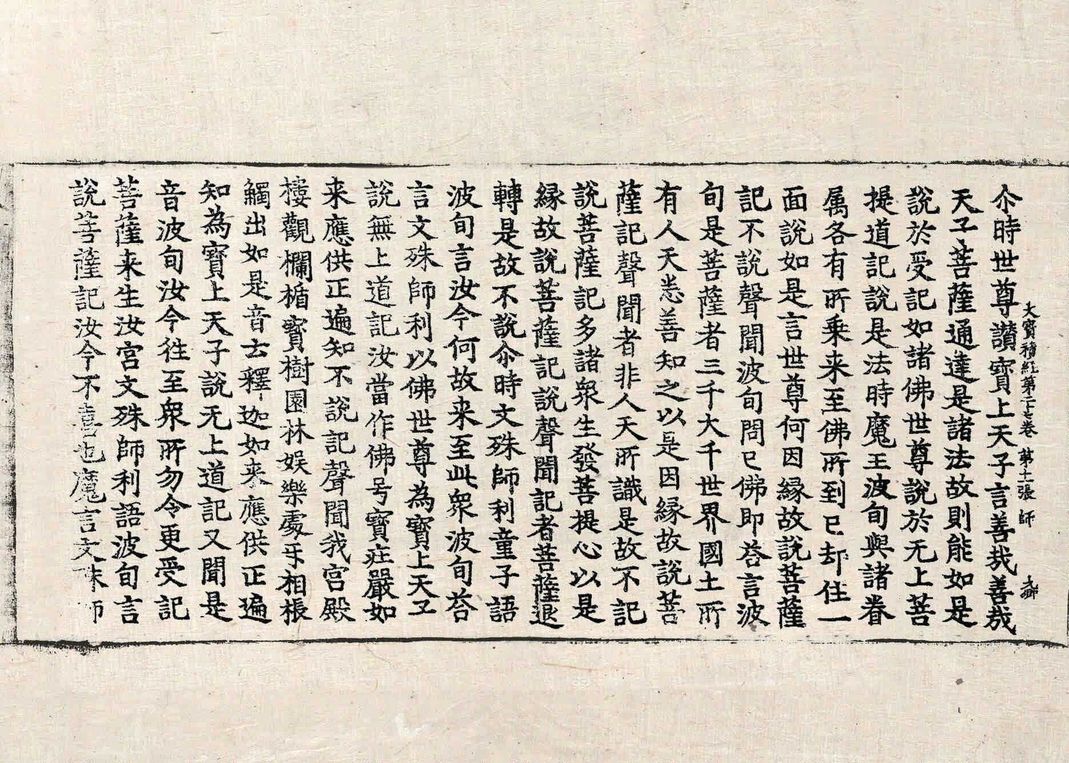 尒時世尊讃寶上天子言善哉善哉
大寶積經第二十七卷 第十二張 師
天子菩薩通達是諸法故則能如是
說於受記如諸佛世尊說於无上菩
提道記說是法時魔王波旬與諸眷
属各有所乘来至佛所到已却住一
面說如是言世尊何因緣故說菩薩
記不說聲聞波旬問已佛即荅言波
旬是菩薩者三千大千世界國土所
有人天悉善知之以是因緣故說菩
薩記聲聞者非人天所識是故不記
說菩薩記多諸衆生發菩提心以是
緣故說菩薩記說聲聞記者菩薩退
轉是故不說尒時文殊師利童子語
波旬言汝今何故来至此衆波旬荅
言文殊師利以佛世尊為寶上天子
說無上道記汝當作佛号寶莊嚴如
来應供正遍知不說記聲聞我宮殿
樓觀欄楯寶樹園林娛樂處手相棖
觸出如是音士釋迦如来應供正遍
知為寶上天子說无上道記又聞是
音波旬汝今往至衆所勿令更受記
菩薩来生汝宮文殊師利語波旬言
說菩薩記汝今不憙也魔言文殊師